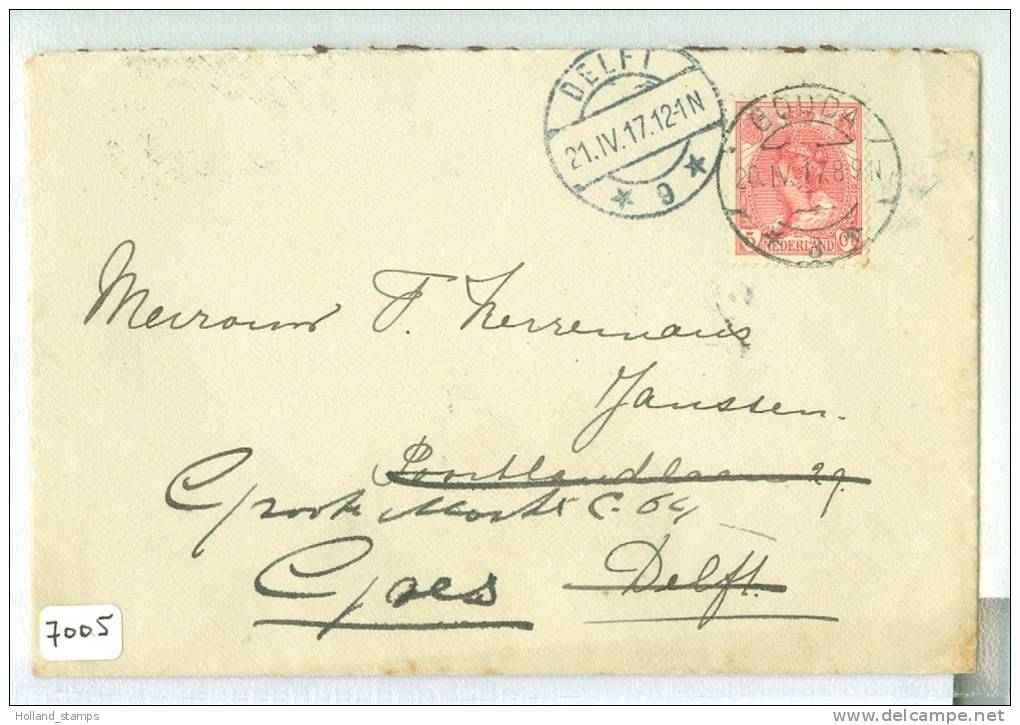 DELFT
21.IV.17.12-1N
* 9 *
GOUDA
20.IV.17.8-9N
* 3 *
5 Ct
NEDERLAND
Mevrouw F. Herremans
Janssen.
29.
Groote Markt C. 64
Goes Delft.
7005
Holland_stamps
www.delcampe.net